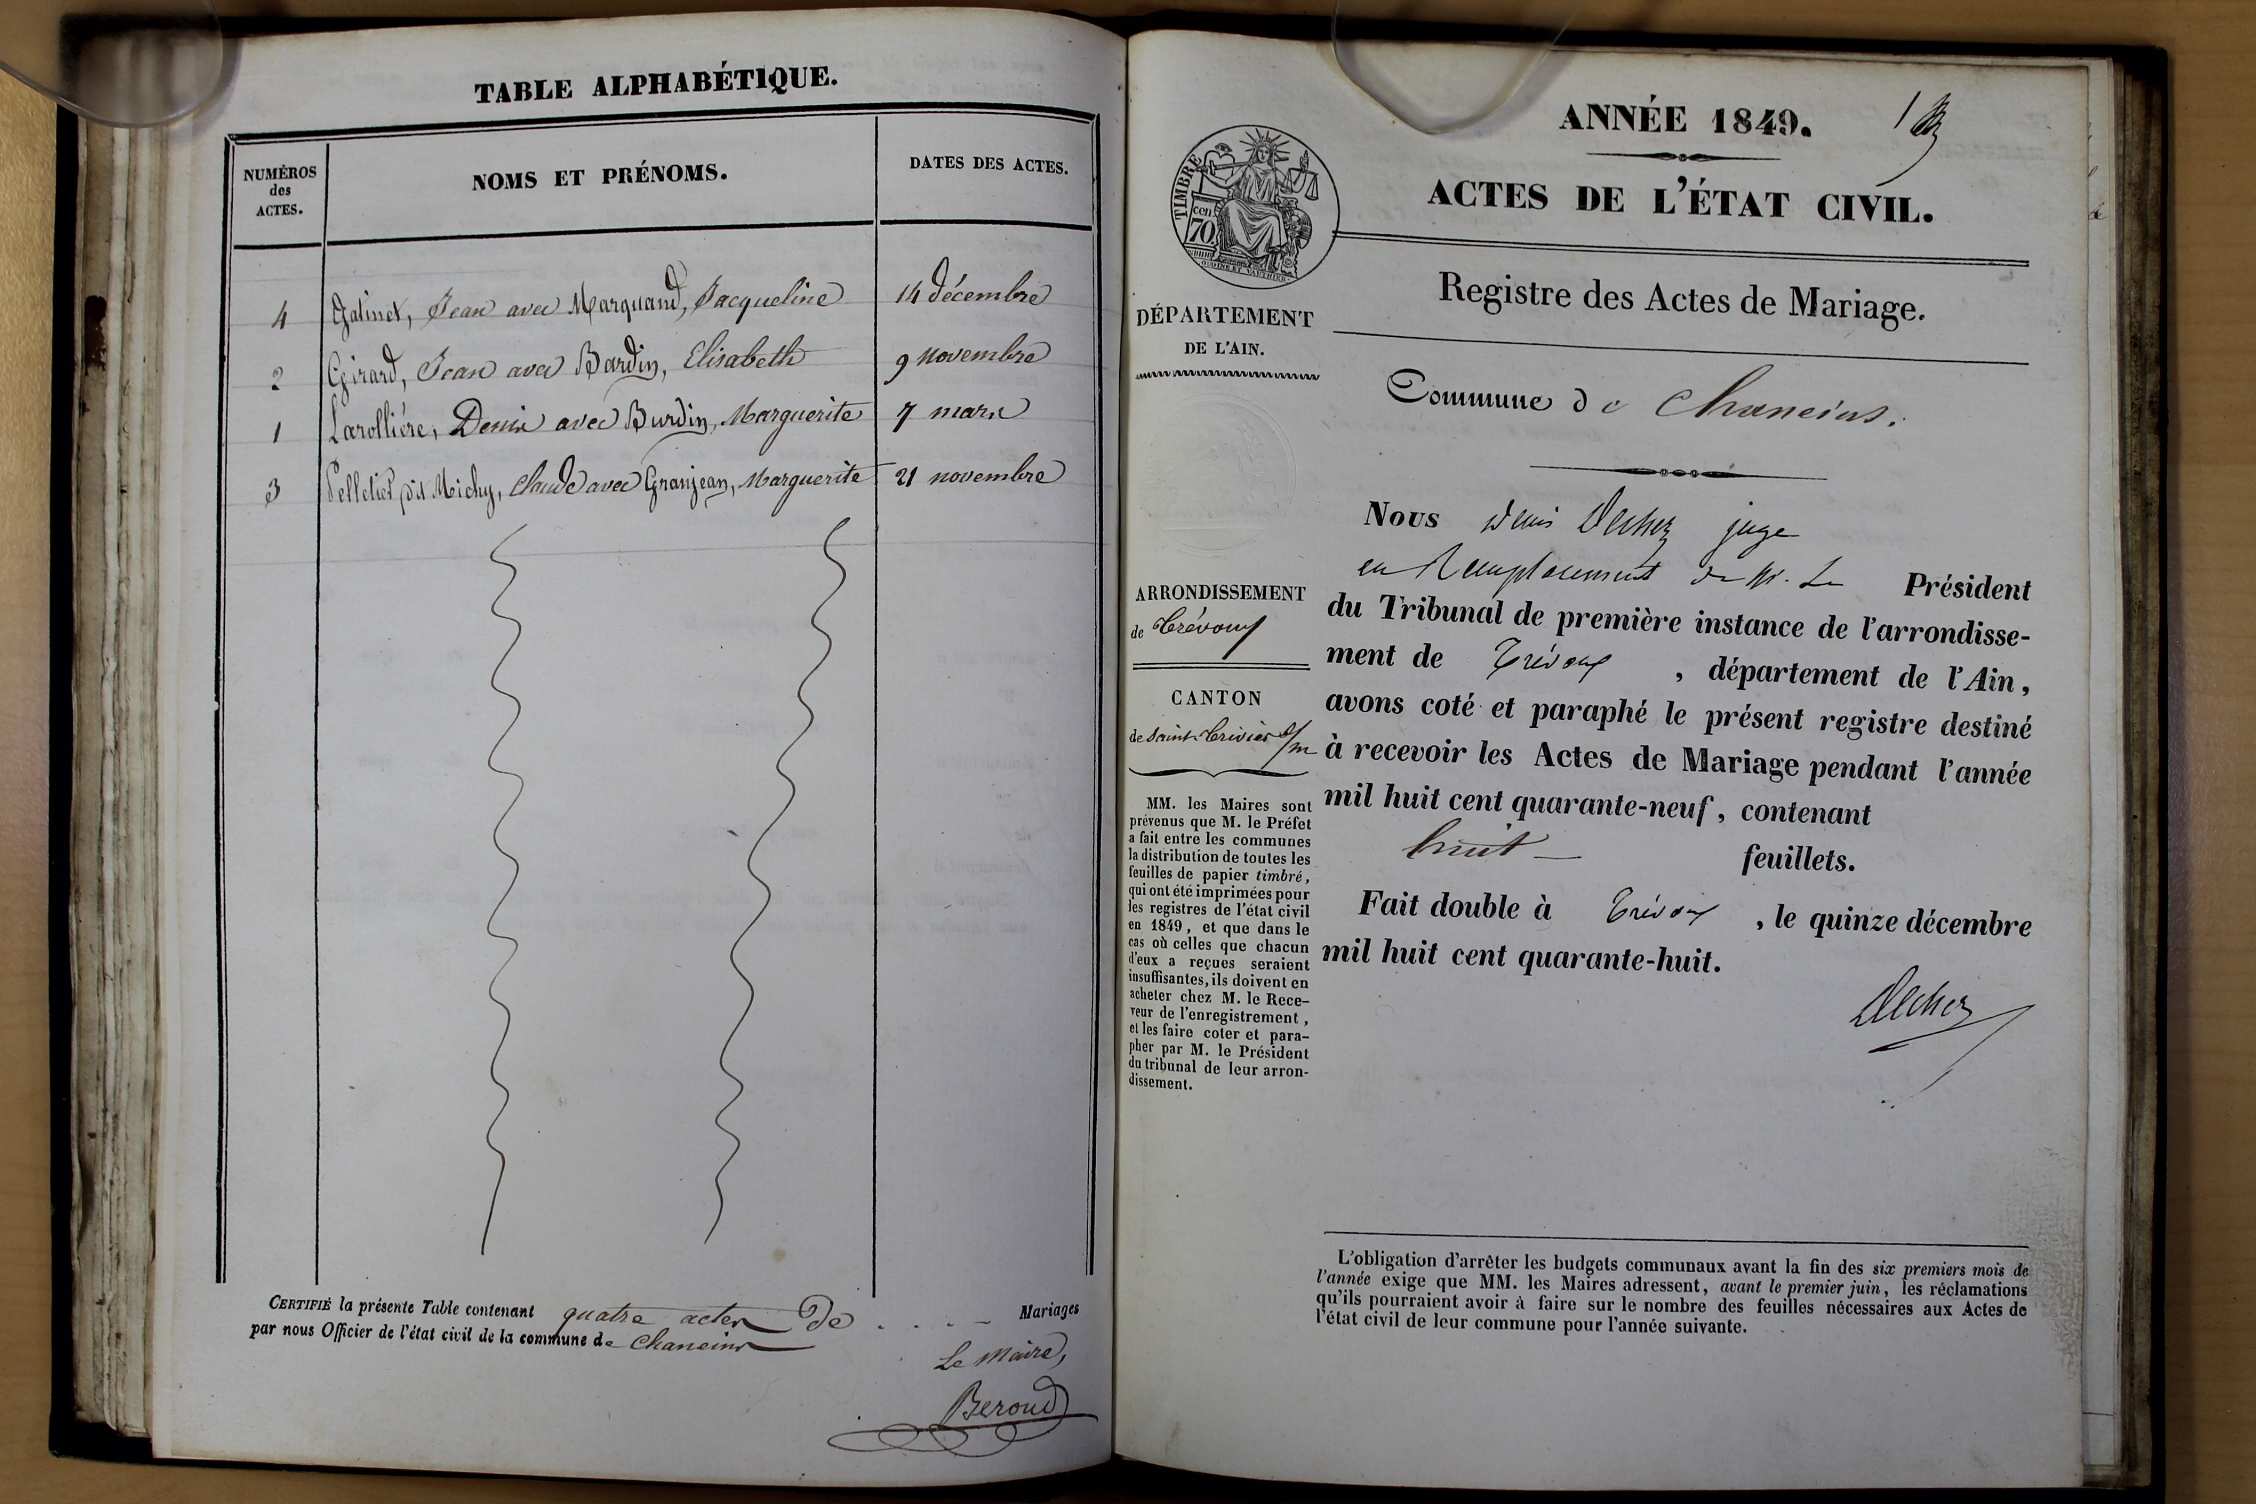 TABLE ALPHABÉTIQUE.
NUMÉROS
des
ACTES.
NOMS ET PRÉNOMS.
DATES DES ACTES.
4 Gatinet, Jean avec Marquand, Jacqueline 14 décembre
2 Girard, Jean avec Bardin, Elisabeth 9 novembre
1 Larollière, Denis avec Burdin, Marguerite 7 mars
3 Pelletier dit Michy, Claude avec Granjean, Marguerite 21 novembre
CERTIFIÉ la présente Table contenant quatre actes de Mariages
par nous Officier de l'état civil de la commune de Chaneins
Le Maire,
Beroud
ANNÉE 1849.
1
ACTES DE L'ÉTAT CIVIL.
TIMBRE
70 cen
Registre des Actes de Mariage.
DÉPARTEMENT
DE L'AIN.
Commune de Chaneins.
ARRONDISSEMENT
de Trévoux
CANTON
de saint-Trivier s/m
MM. les Maires sont
prévenus que M. le Préfet
a fait entre les communes
la distribution de toutes les
feuilles de papier timbré,
qui ont été imprimées pour
les registres de l'état civil
en 1849, et que dans le
cas où celles que chacun
d'eux a reçues seraient
insuffisantes, ils doivent en
acheter chez M. le Rece-
veur de l'enregistrement,
et les faire coter et para-
pher par M. le Président
du tribunal de leur arron-
dissement.
Nous Denis Dechez juge
en Remplacement de M. Le Président
du Tribunal de première instance de l'arrondisse-
ment de Trévoux, département de l'Ain,
avons coté et paraphé le présent registre destiné
à recevoir les Actes de Mariage pendant l'année
mil huit cent quarante-neuf, contenant
huit feuillets.
Fait double à Trévoux, le quinze décembre
mil huit cent quarante-huit.
Dechez
L'obligation d'arrêter les budgets communaux avant la fin des six premiers mois de
l'année exige que MM. les Maires adressent, avant le premier juin, les réclamations
qu'ils pourraient avoir à faire sur le nombre des feuilles nécessaires aux Actes de
l'état civil de leur commune pour l'année suivante.